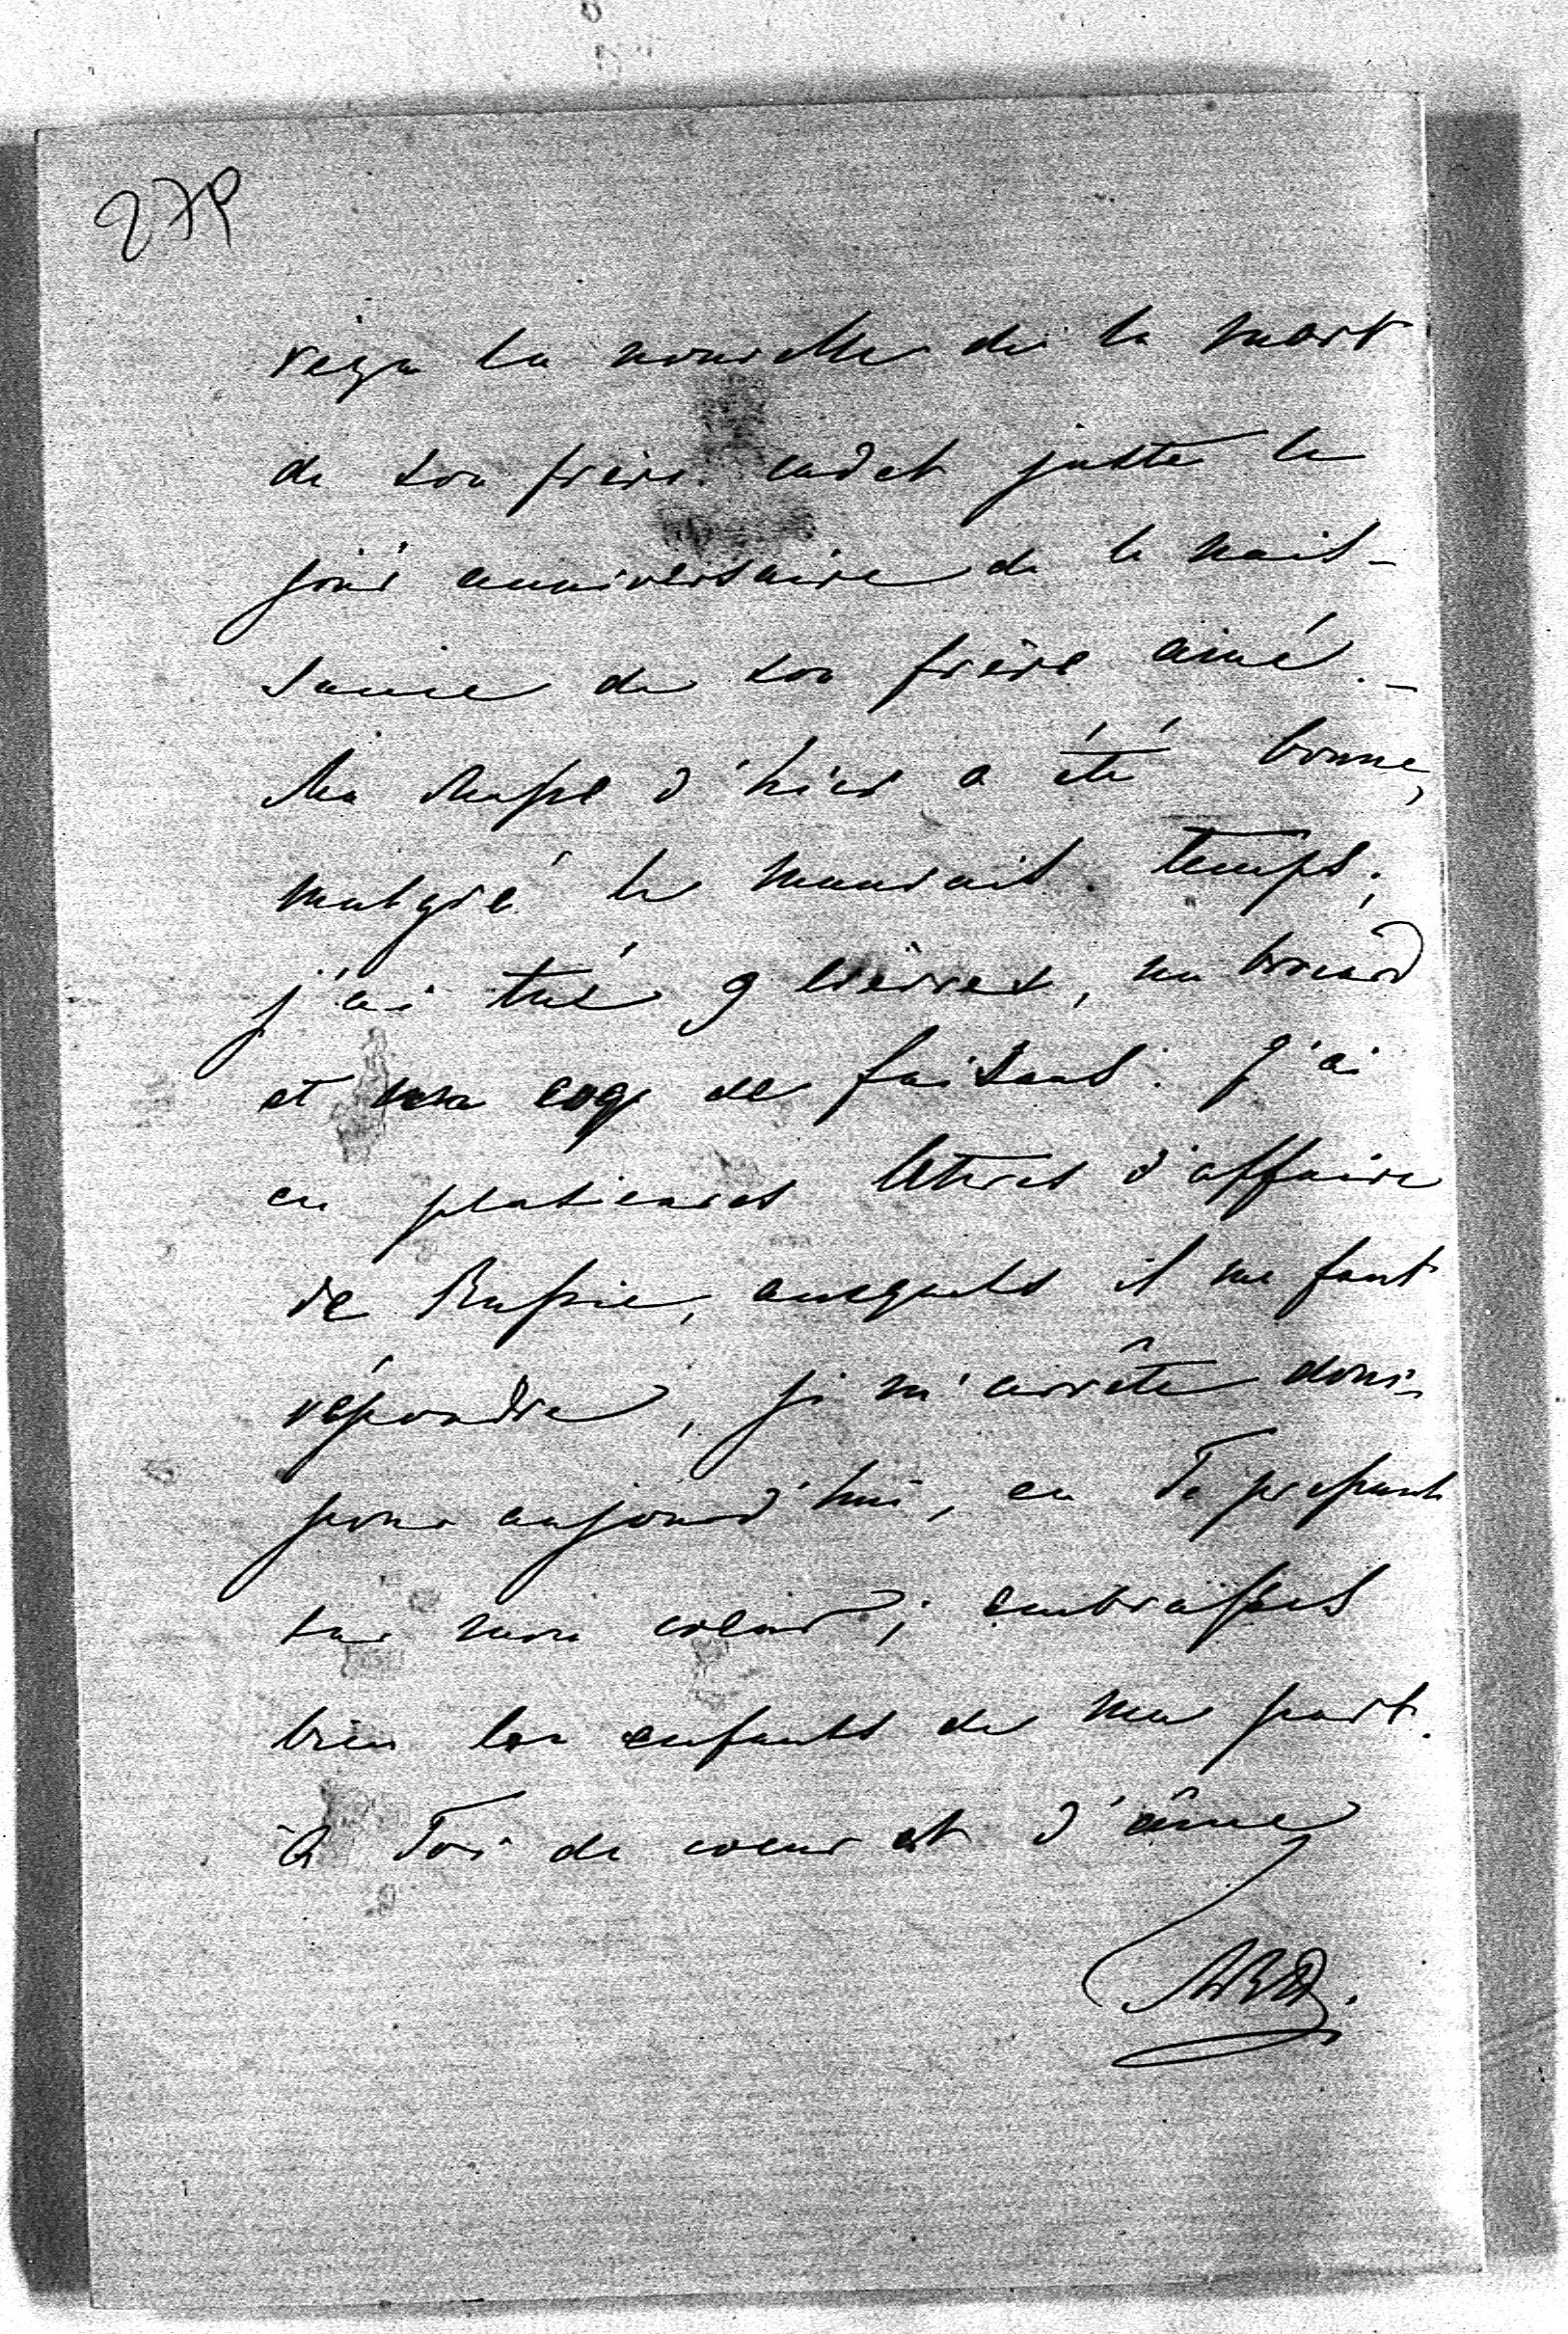 279
reçu la nouvelle de la mort
de son frère cadet juste le
jour anniversaire de la nais-
sance de son frère ainé. –
Ma chasse d'hier a été bonne,
malgré le mauvais temps;
j'ai tué 9 lièvres, un
et un coq de faisans. J'ai
eu plusieures lettres d'affaire
de Russie, auxquels il me faut
répondre, je m'arrête donc
pour aujourd'hui, en Te pressant
sur mon coeur; embrasses
bien les enfants de ma part.
à Toi de coeur et d'âme